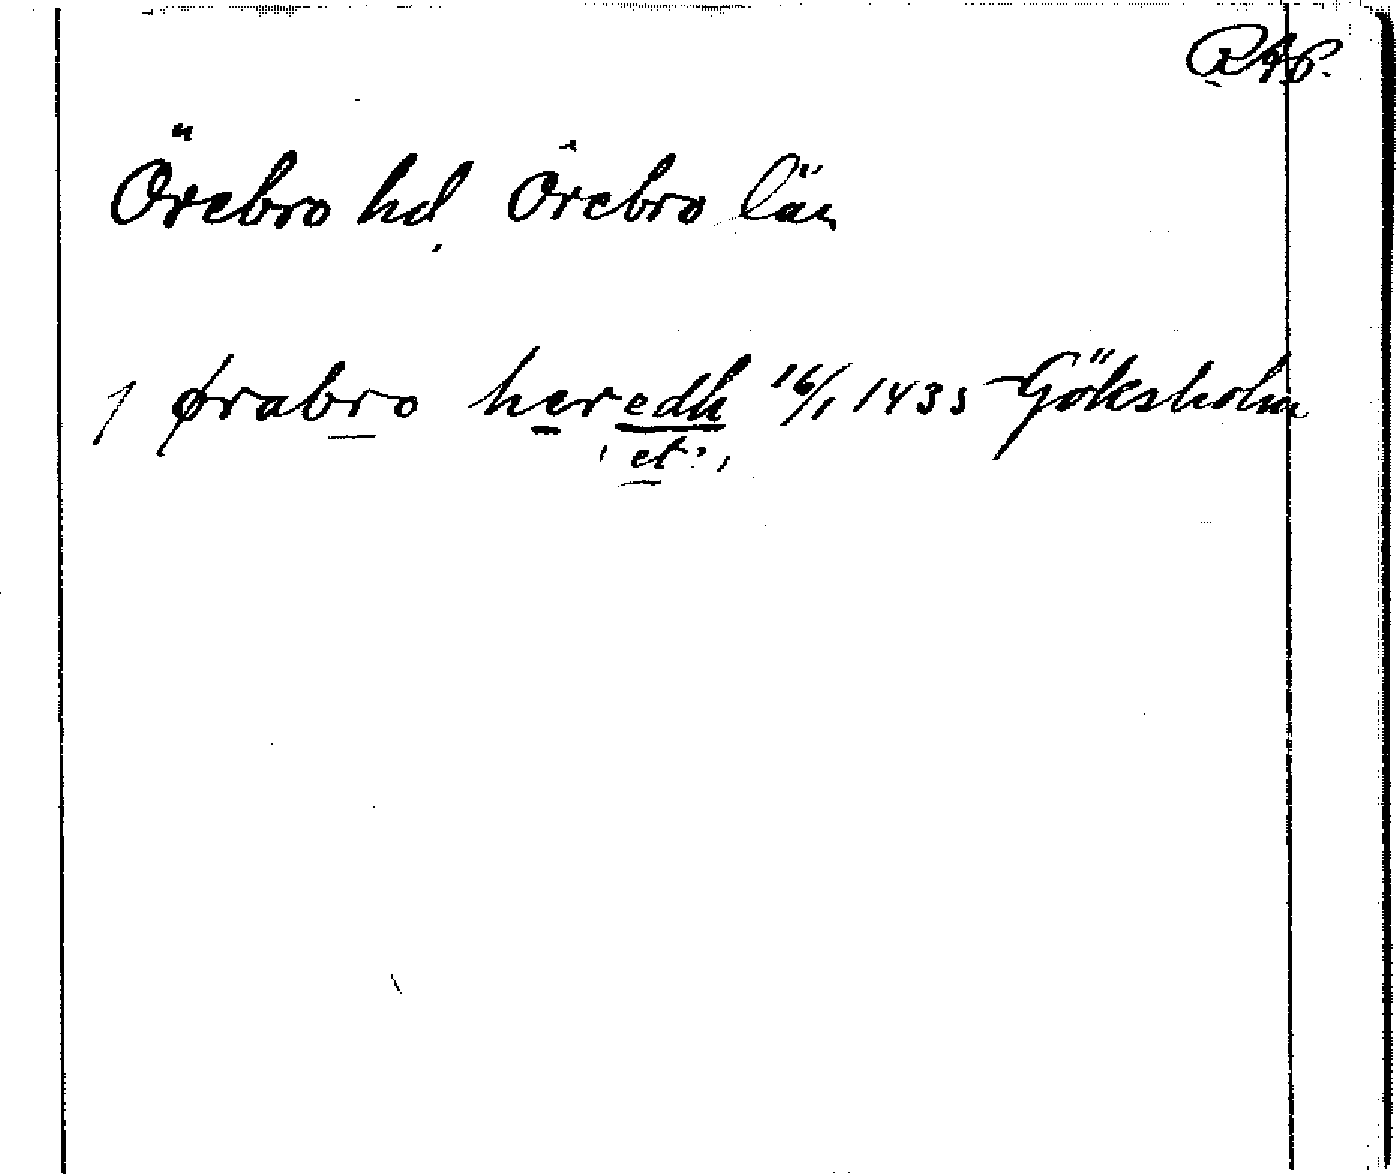 RAp.
Örebro hd, Örebro län
j ørabro heredh 16/1 1435 Göksholm
(et?)